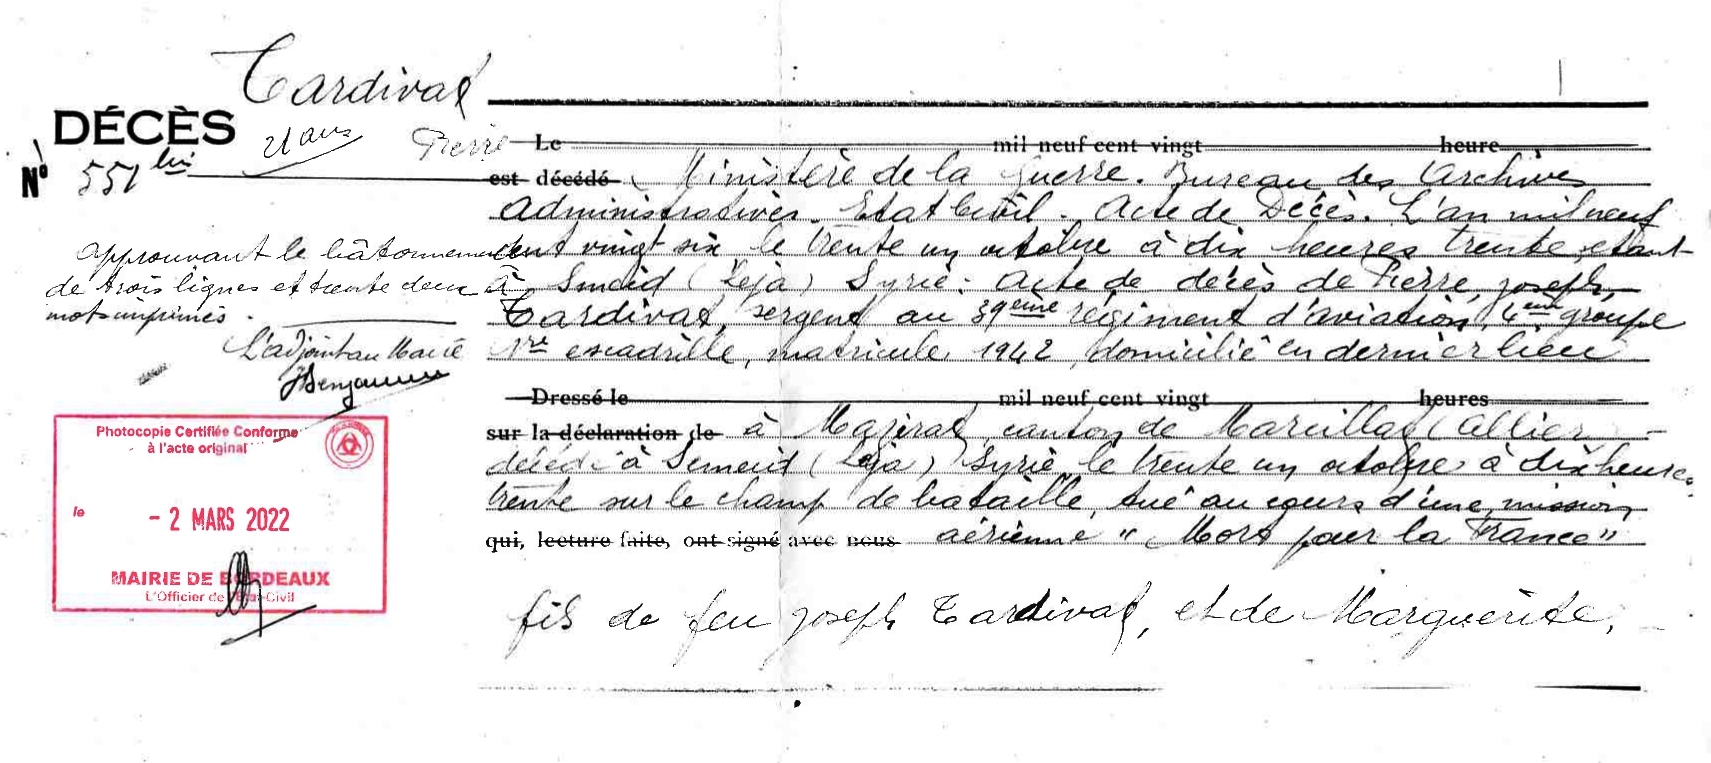 Tardivat
DÉCÈS
21 ans
Pierre
N° 551 bis
Le mil neuf cent vingt heure
est décédé Ministère de la Guerre. Bureau des Archives
Administratives. Etat Civil. Acte de Décès. L'an mil neuf
cent vingt six, le trente un octobre à dix heures trente, étant
à Smeid (Leja) Syrie. Acte de décès de Pierre, Joseph,
Tardivat, sergent au 39ème régiment d'aviation, 4ème groupe
1re escadrille, matricule 1942, domicilié en dernier lieu
approuvant le bâtonnement
de trois lignes et trente deux
mots imprimés.
L'adjoint au Maire
Dressé le mil neuf cent vingt heures
sur la déclaration de à Mazirat, canton de Marcillat (Allier)
décédé à Semeid (Leja) Syrie, le trente un octobre à dix heures
trente sur le champ de bataille, tué au cours d'une mission
qui, lecture faite, ont signé avec nous aérienne "Mort pour la France"
fils de feu Joseph Tardivat, et de Marguerite,
Photocopie Certifiée Conforme
à l'acte original
le - 2 MARS 2022
MAIRIE DE BORDEAUX
L'Officier de l'Etat-Civil